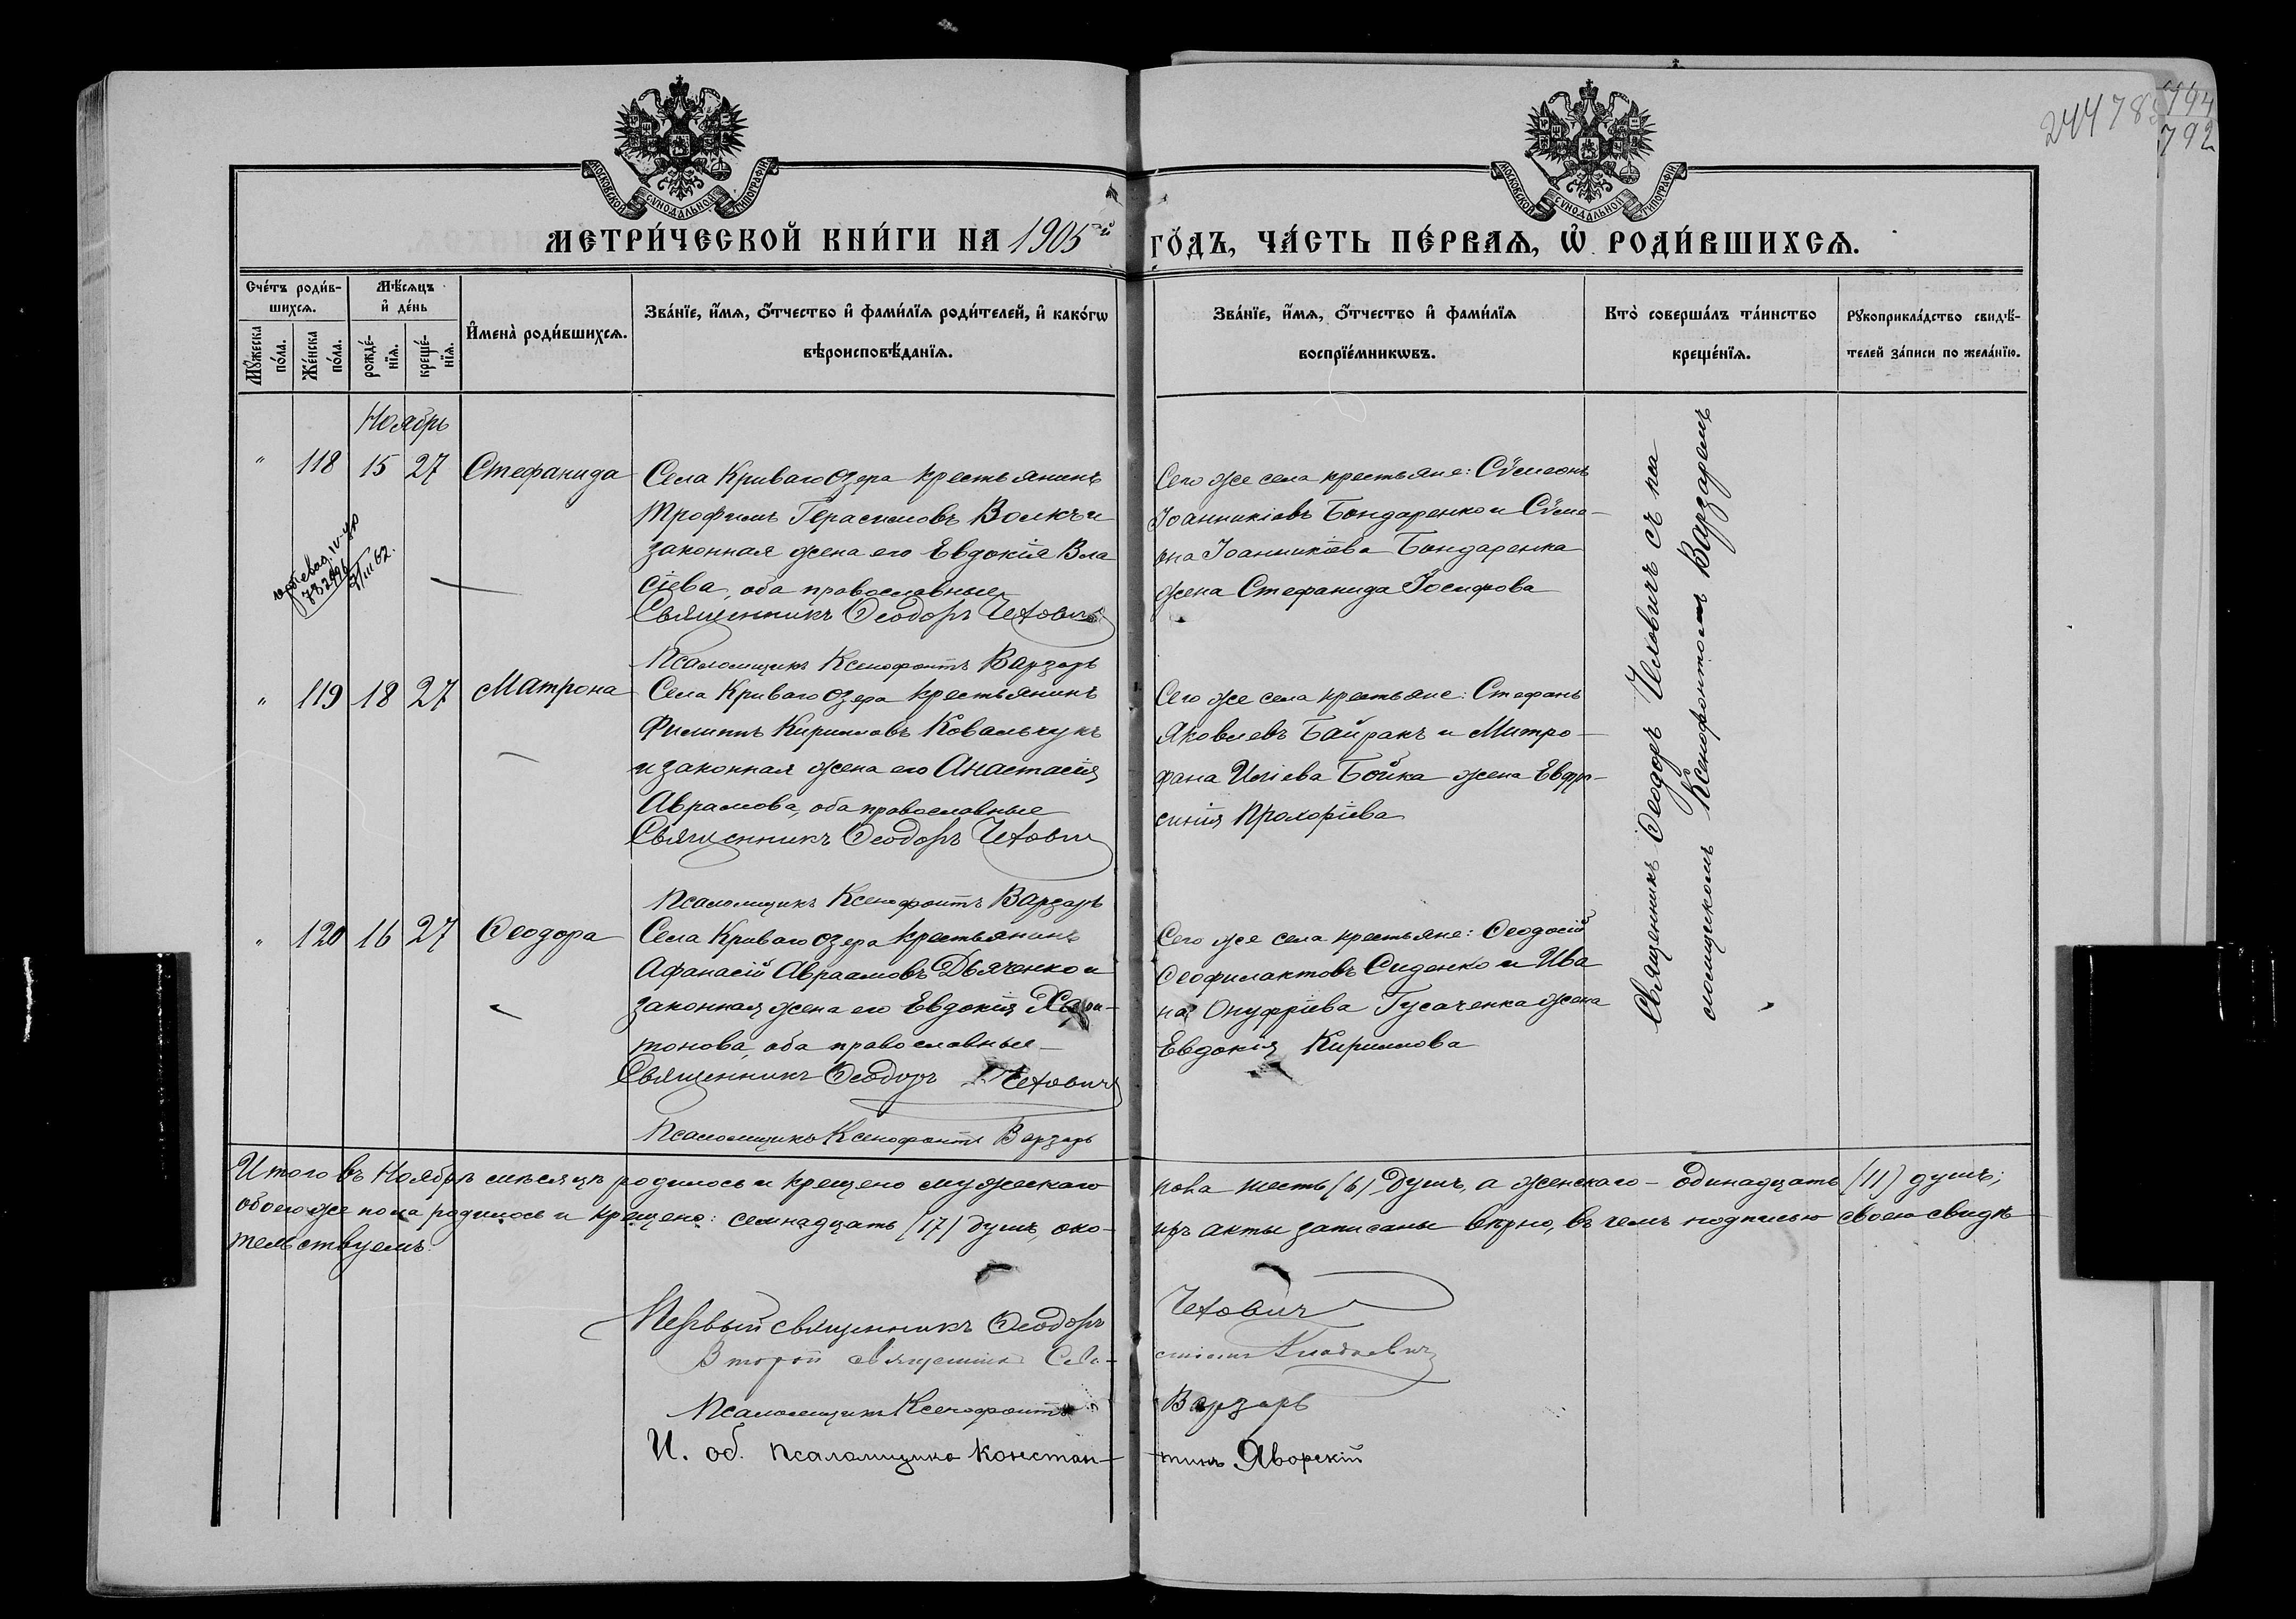 244 785 794
792
МОСКОВСКОЙ СУНОДАЛЬНОЙ ТИПОГРАФІИ
МОСКОВСКОЙ СУНОДАЛЬНОЙ ТИПОГРАФІИ
МЕТРИ́ЧЕСКОЙ КНИ́ГИ НА 1905ый ГО́ДЪ, ЧА́СТЬ ПЕ́РВАѦ, Ѽ РОДИ́ВШИХСѦ.
Сче́тъ роди́в-
шихсѧ.
Мꙋ́жеска по́ла.
Же́нска по́ла.
Мѣ́сѧцъ
и҆ де́нь
рожде́-
нїѧ.
креще́-
нїѧ.
И҆мена̀ роди́вшихсѧ.
Зва́нїе, и҆́мѧ, ѻ҆́тчество и҆ фами́лїѧ роди́телей, и҆ како́гѡ
вѣроисповѣ́данїѧ.
Зва́нїе, и҆́мѧ, ѻ҆́тчество и҆ фами́лїѧ
воспрїе́мникѡвъ.
Кто̀ соверша́лъ та́инство
креще́нїѧ.
Рꙋкоприкла́дство свидѣ́-
телей за́писи по жела́нїю.
Ноябрь
" 118 15 27 Стефанида
Села Криваго Озера крестьянинъ
Трофимъ Герасимовъ Волкъ и
законная жена его Евдокія Вла
сіева, оба православные
Священникъ Ѳеодоръ Чехович
Псаломщикъ Ксенофонтъ Варзарь
Сего же села крестьяне: Сѵмеонъ
Іоанникіевъ Бондаренко и Сѵме-
она Іоанникіева Бондаренка
жена Стефанида Іосифова
732996
" 119 18 27 Матрона
Села Криваго Озера крестьянинъ
Филиппъ Кирилловъ Ковальчукъ
и законная жена его Анастасія
Аврамова, оба православные
Священникъ Ѳеодоръ Чехович
Псаломщикъ Ксенофонтъ Варзарь
Сего же села крестьяне: Стефанъ
Яковлевъ Байракъ и Митро-
фана Иліева Бойка жена Евфро-
синія Прохоріева
" 120 16 27 Ѳеодора
Села Криваго Озера крестьянинъ
Афанасій Авраамовъ Дьяченко и
законная жена его Евдокія Хари-
тонова, оба православные
Священникъ Ѳеодоръ Чеховичъ
Псаломщикъ Ксенофонтъ Варзарь
Сего же села крестьяне: Ѳеодосій
Ѳеофилактовъ Сиденко и Ива
на Онуфріева Гусаченка жена
Евдокія Кириллова
Священникъ Ѳеодоръ Чеховичъ съ пса
ломщикомъ Ксенофонтомъ Варзаремъ
Итого въ Ноябрѣ мѣсяцѣ родилось и крещено мужескаго пола шесть (6) душъ, а женскаго – одинадцать (11) душъ;
обоего же пола родилось и крещено: семнадцать (17) душъ, око- ихъ акты записаны вѣрно, въ чемъ подписью своею свидѣ
тельствуемъ.
Первый священникъ Ѳеодоръ Чехович
Второй священникъ
Псаломщикъ Ксенофонтъ Варзарь
И. об. псаломщика Констан- тинъ Яворскій